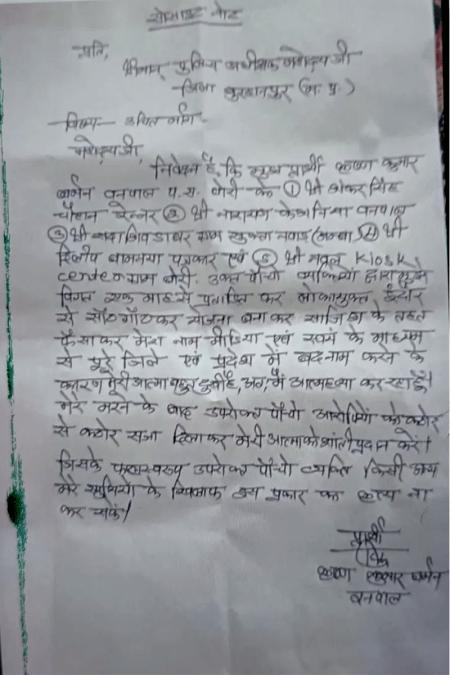 सोसाइट नोट
प्रति,
श्रीमान् पुलिस अधीक्षक महोदय जी
जिला बुरहानपुर (म.प्र.)
विषय - उचित मांग
महोदय जी,
निवेदन है, कि प्रार्थी कृष्ण कुमार
बर्मन वनपाल प.स. बोरी के ① श्री ओंकार सिंह
चौहान रेन्जर ② श्री नारायण वनपाल
③ श्री सदाशिव डाबर ग्राम (अम्बा) ④ श्री
दिलीप बामनया पत्रकार एवं ⑤ श्री Kiosk
center ग्राम बोरी. उक्त पाँचो व्यक्तियो द्वारा मुझे
विगत एक माह से प्रताड़ित कर लोकायुक्त इंदौर
से साँठगाँठ कर योजना बना कर साजिश के तहत
फँसा कर मेरा नाम मीडिया एवं स्वयं के माध्यम
से पूरे जिले एवं प्रदेश में बदनाम करने के
कारण मेरी आत्मा बहुत दुखी है, अतः मैं आत्महत्या कर रहा हूँ।
मेरे मरने के बाद उपरोक्त पाँचो आरोपियो को कठोर
से कठोर सजा दिलाकर मेरी आत्मा को शांती प्रदान करें।
जिसके फलस्वरूप उपरोक्त पाँचो व्यक्ति किसी अन्य
मेरे साथियो के खिलाफ इस प्रकार का कृत्य ना
कर सकें।
प्रार्थी
कृष्ण कुमार बर्मन
वनपाल